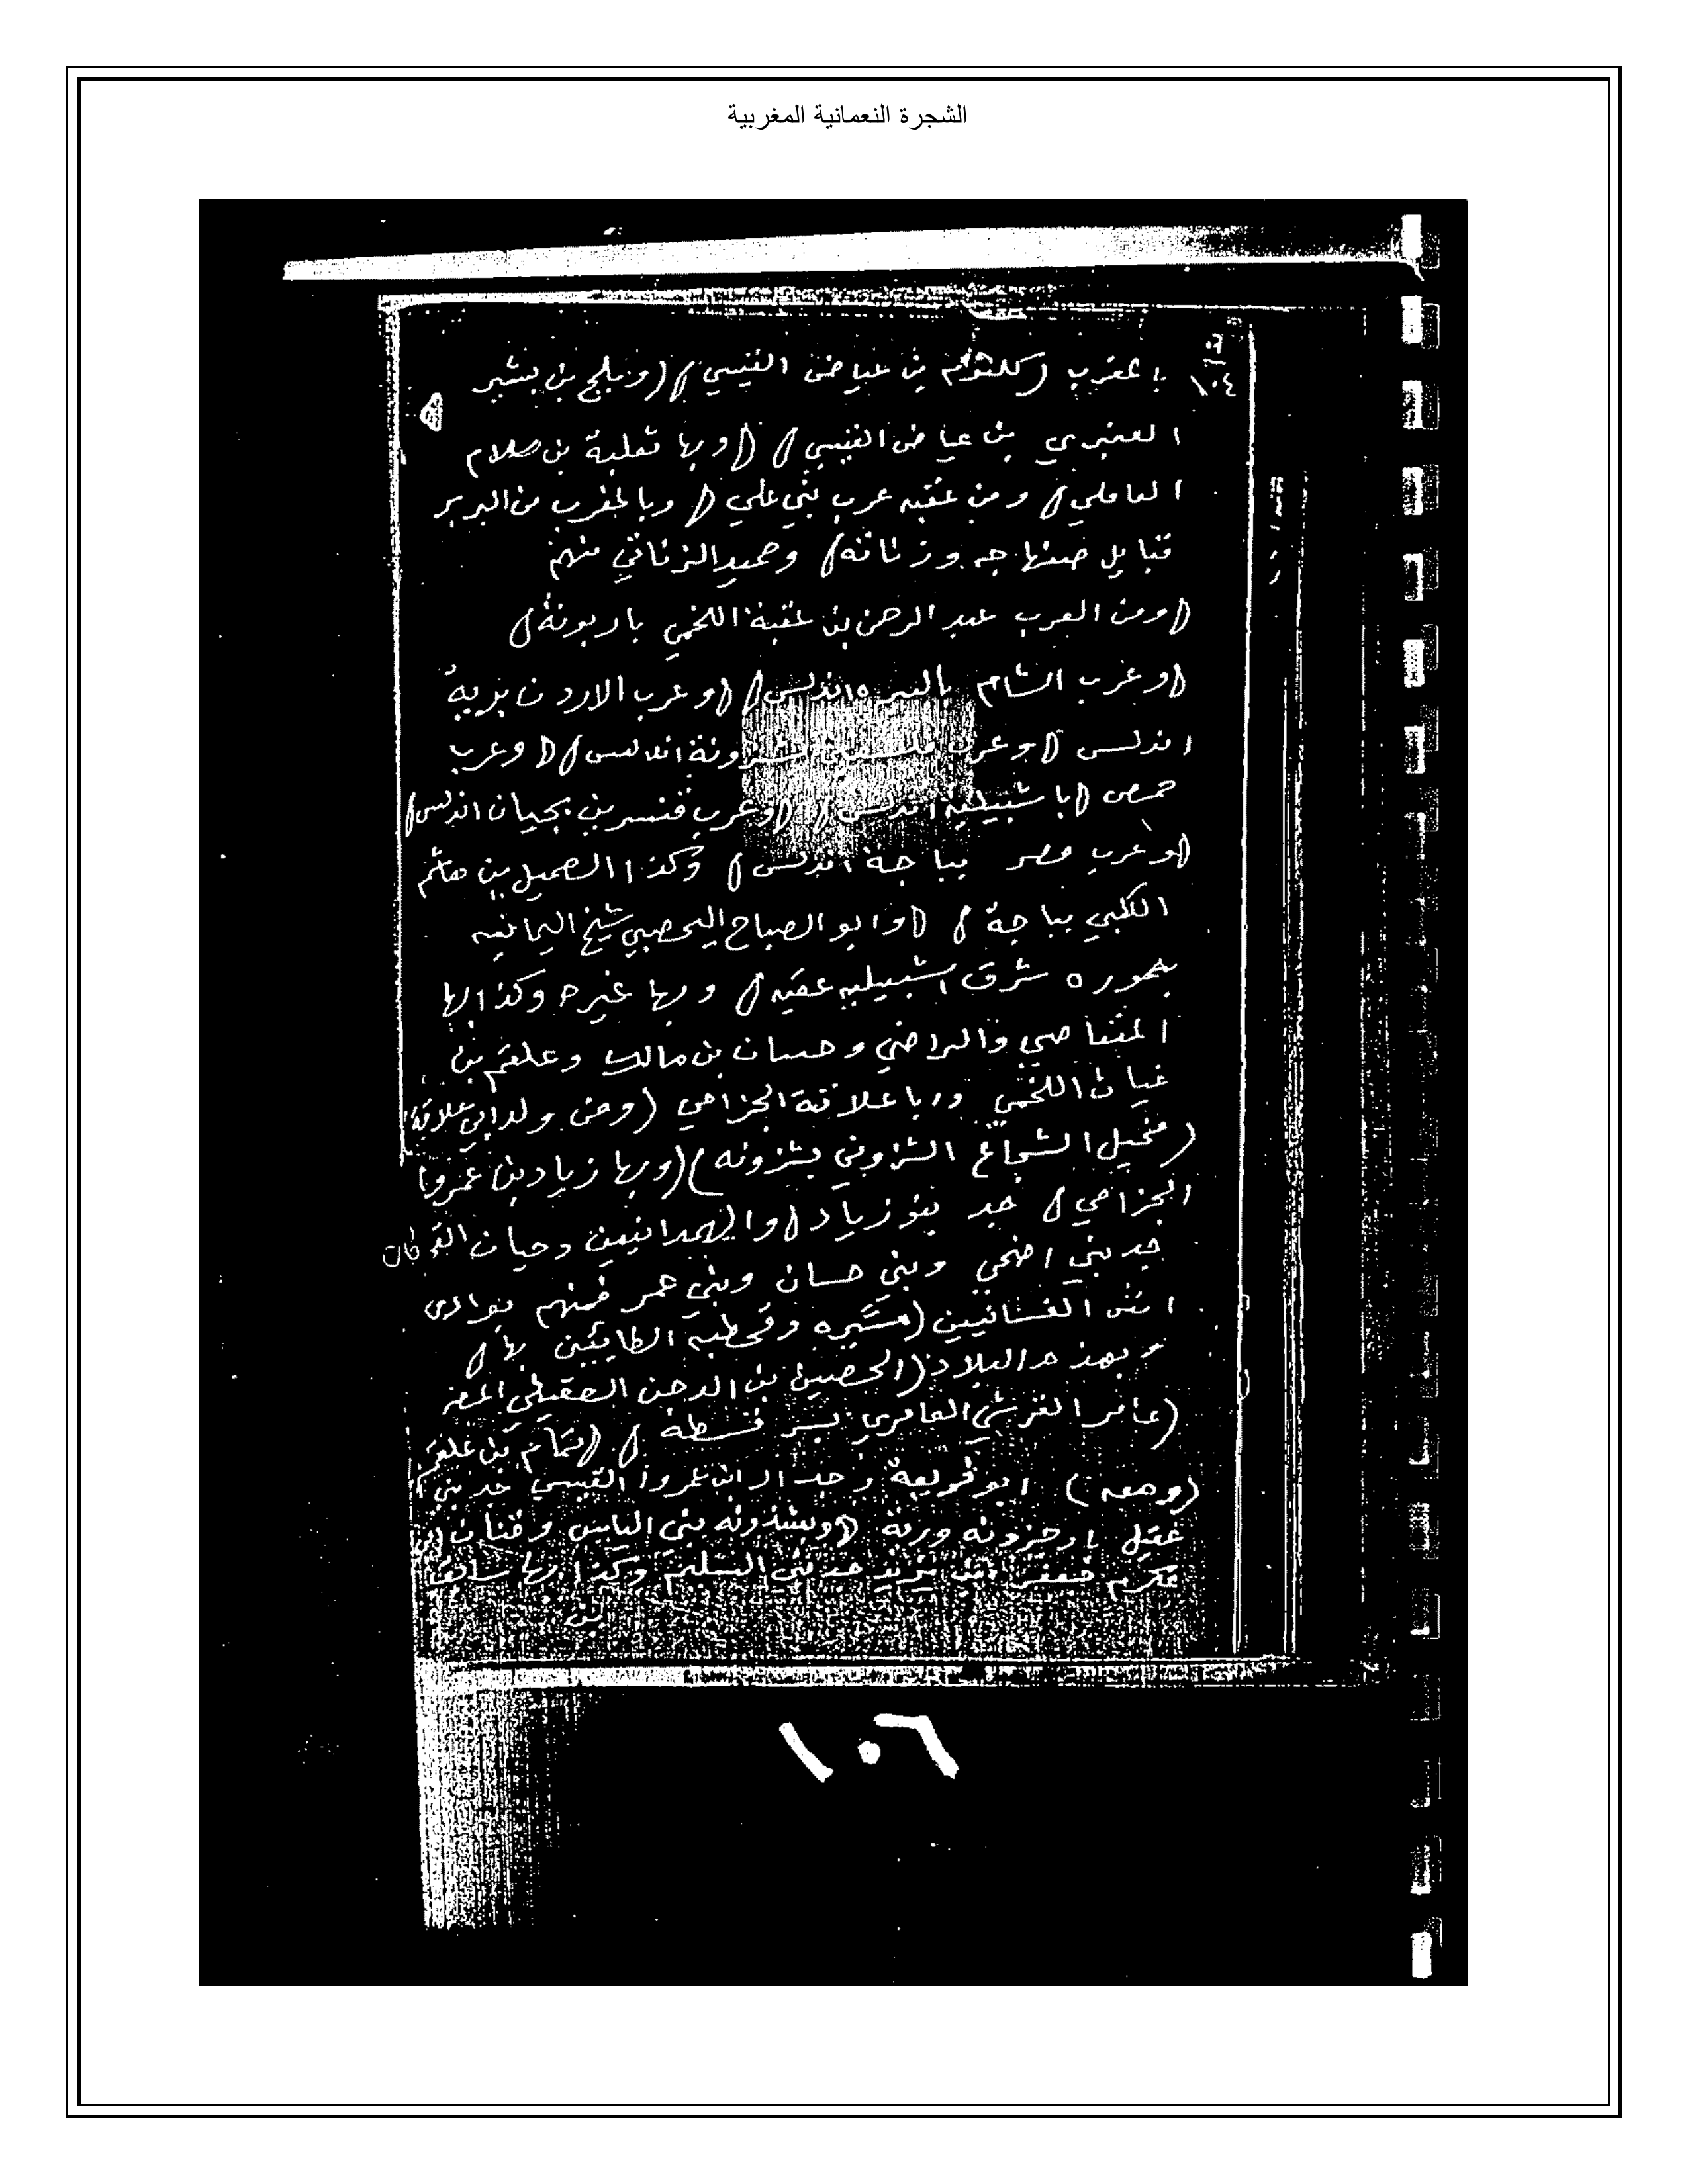 الشجرة النعمانية المغربية
١٠٤
بالمغرب (كلثوم بن عياض القيسي) (وبلج بن بشير
العنبري بن عياض القيسي) (وبها ثعلبة بن سلام
العاملي) ومن عقبه عرب بني علي (وبالمغرب من البربر
قبايل صنهاجه وزناته) وحميد الزناتي منهم
(ومن العرب عبد الرحمن بن عقبة اللخمي باربونة)
(وعرب الشام بالبيره اندلس) (وعرب الاردن بريه
اندلس (وعرب فلسطين بشزونة اندلس) (وعرب
حمص (باشبيلية اندلس) (وعرب قنسرين بجيان اندلس)
(وعرب مصر بباجة اندلس) وكذا الصميل بن حاتم
الكلبي بباجة) (وابو الصباح اليحصبي شيخ اليمانيه
بمموره شرق اشبيليه عقبه) وبها غيره وكذا بها
والراضي وحسان بن مالك وعلقم بن
غياث اللخمي وابا علاقة الجزامي (ومن ولد ابي علاقة
(منخيل الشجاع الشزوني بشزونه) (وبها زياد بن عمروا
الجزامي) جد بنو زياد (والهمدانيين وحيان
جد بني اضحي وبني حسان وبني عمر فمنهم بوادى
اش الغسانيين (مسيره وقحطبه الطائيين بها)
وبهذه البلاد (الحصين بن الدجن العقيلي
(عامر القرشي العامري بسرقسطة) (تمام بن علقم
(ومعه) ابو فريعة وجدار ابن عمروا القيسي جد بني
عقيل بارجزونه ورية (وبشذونه بني الياس
جد بني السليم وكذا بها
بن
١٠٦